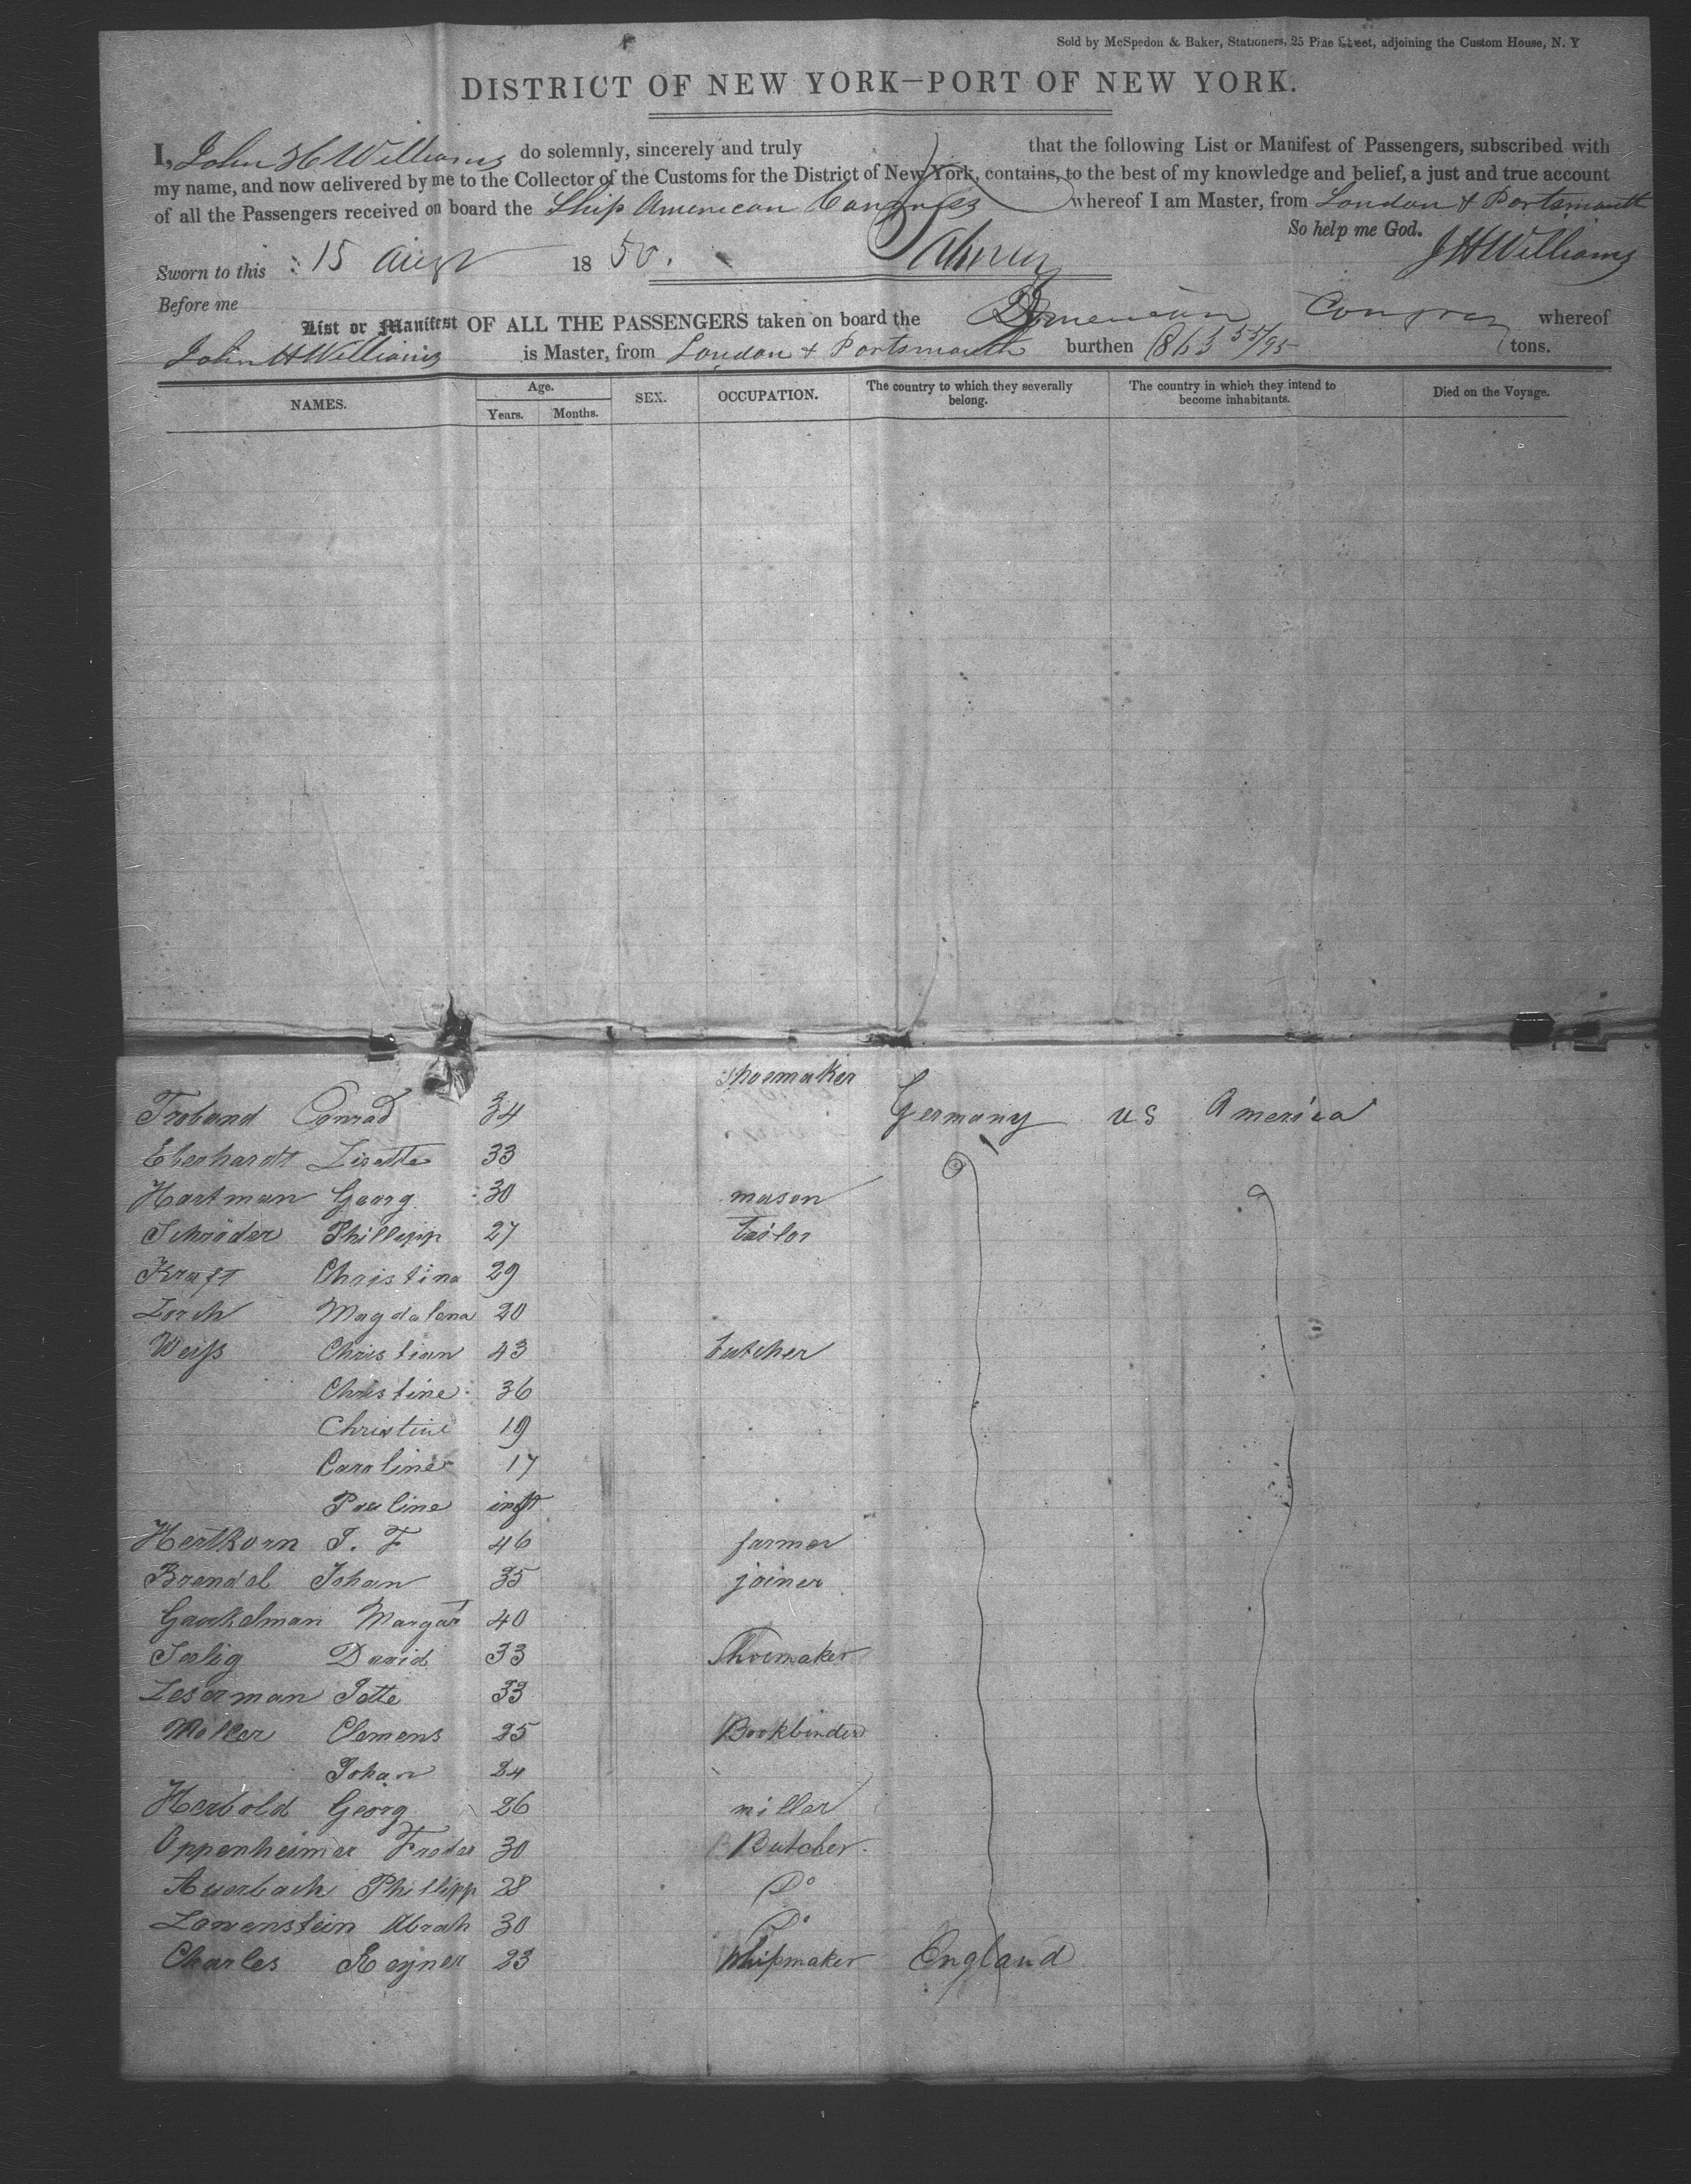 Sold by McSpedon & Baker, Stationers, 25 Pine Street, adjoining the Custom House, N. Y
DISTRICT OF NEW YORK—PORT OF NEW YORK.
I, John H Williams do solemnly, sincerely and truly that the following List or Manifest of Passengers, subscribed with
my name, and now delivered by me to the Collector of the Customs for the District of New York, contains, to the best of my knowledge and belief, a just and true account
of all the Passengers received on board the Ship American Congress whereof I am Master, from London & Portsmouth
So help me God.
Sworn to this 15 Augt 1850. JHWilliams
Before me
List or Manifest OF ALL THE PASSENGERS taken on board the American Congress whereof
John H Williams is Master, from London & Portsmouth burthen 863 55/95 tons.
NAMES. Age. Years. Months. SEX. OCCUPATION. The country to which they severally belong. The country in which they intend to become inhabitants. Died on the Voyage.
Troband Conrad 34 shoemaker Germany US America
Eberhardt Lisette 33
Hartman Georg 30 mason
Schröder Phillipp 27 tailor
Kraft Christina 29
Lorch Magdalena 20
Weiß Christian 43 butcher
Christine 36
Christine 19
Caroline 17
Pauline inft
Hertkorn J. F 46 farmer
Brendel Johan 35 joiner
Margar 40
David 33 Shoemaker
Leserman Jette 33
Moller Clemens 25 Bookbinder
Johan 24
Herbold Georg 26 miller
Oppenheimer Freder 30 Butcher
Auerbach Phillipp 28 Do
Lowenstein Abrah 30 Do
Charles Reyner 23 Whipmaker England